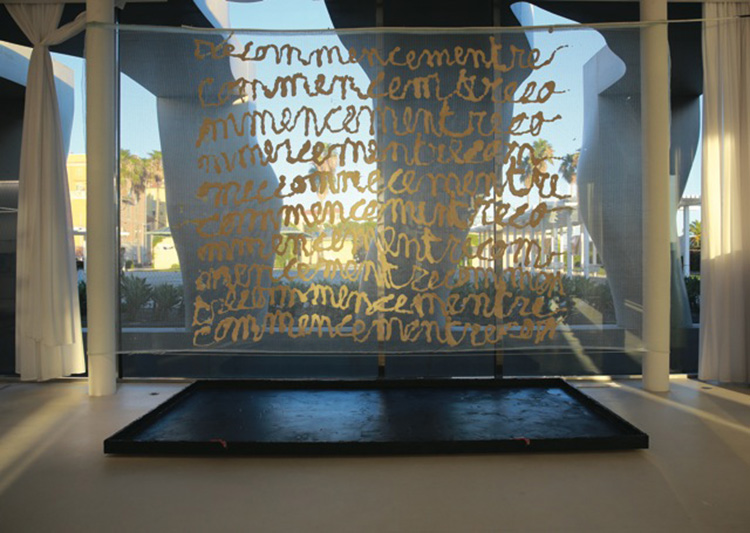 recommencementre
commencemtreco
mmencementreco
mmencementrecom
commencementreco
mmencementrecom
mencementrecommen
trecommencementre
commencementrecom